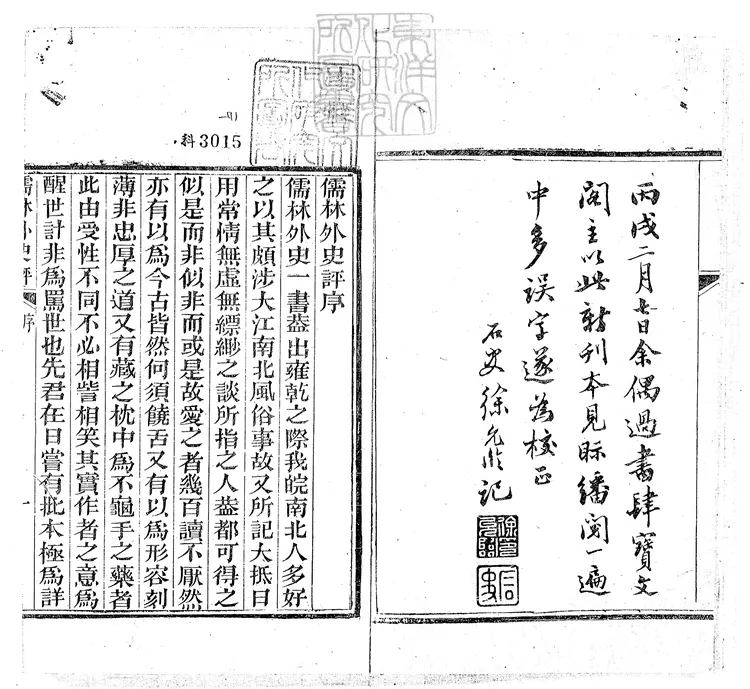 丙戌二月七日余偶過書肆寶文
閣主以此新刊本見眎繙閱一遍
中多誤字遂為校正
石史徐允臨記
科3015
儒林外史評序
儒林外史一書葢出雍乾之際我皖南北人多好
之以其頗涉大江南北風俗事故又所記大抵日
用常情無虛無縹緲之談所指之人葢都可得之
似是而非似非而或是故愛之者幾百讀不厭然
亦有以爲今古皆然何須饒舌又有以爲形容刻
薄非忠厚之道又有藏之枕中爲不龜手之藥者
此由受性不同不必相訾相笑其實作者之意爲
醒世計非爲罵世也先君在日嘗有批本極爲詳
儒林外史評 序 一